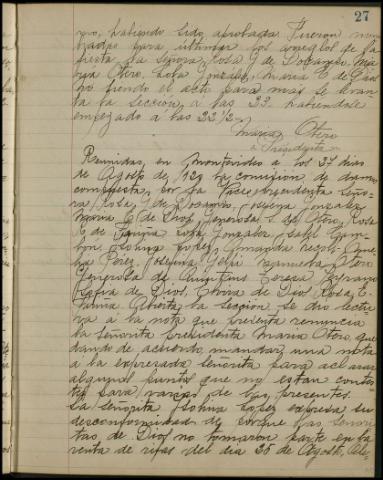 27
habiendo sido aprobada. Fueron
para ultimar los arreglos de la
fiesta la Señora Rosa G de Docampo, Ma
ria Otero, Lola Gonzalez, Maria C de Dios
no siendo el acto para más se levan
ta la sección a las 23 habiendose
empezado a las 22 1/2
Maria Otero
Presidenta
Reunidas en Montevideo a los 27 dias
de Agosto de 1929 la comision de damas
compuesta por la Vice Presidenta Seño
ra Rosa G de Docampo, Josefina Gonzalez
Maria C de Dios, Generosa S de Otero, Rosa
C de Fariña, Lola Gonzalez, Isabel
Josina Lopez, Amanda
Perez, Josefina Otero
Generosa de Teresa
de Dios, Elvira de Dios, Rosa C
Fariña. Abierta la sección se dio lectu
ra a la nota que presenta renuncia
la señorita presidenta Maria Otero, que
dando de acuerdo mandar una nota
a la expresada señorita para aclarar
algunos puntos que no estan confor
tes para varias de las presentes.
La Señorita Josina Lopez expresa su
desconformidad de porque las senori
tas de Dios no tomaron parte en la
venta de rifas del dia 25 de Agosto,